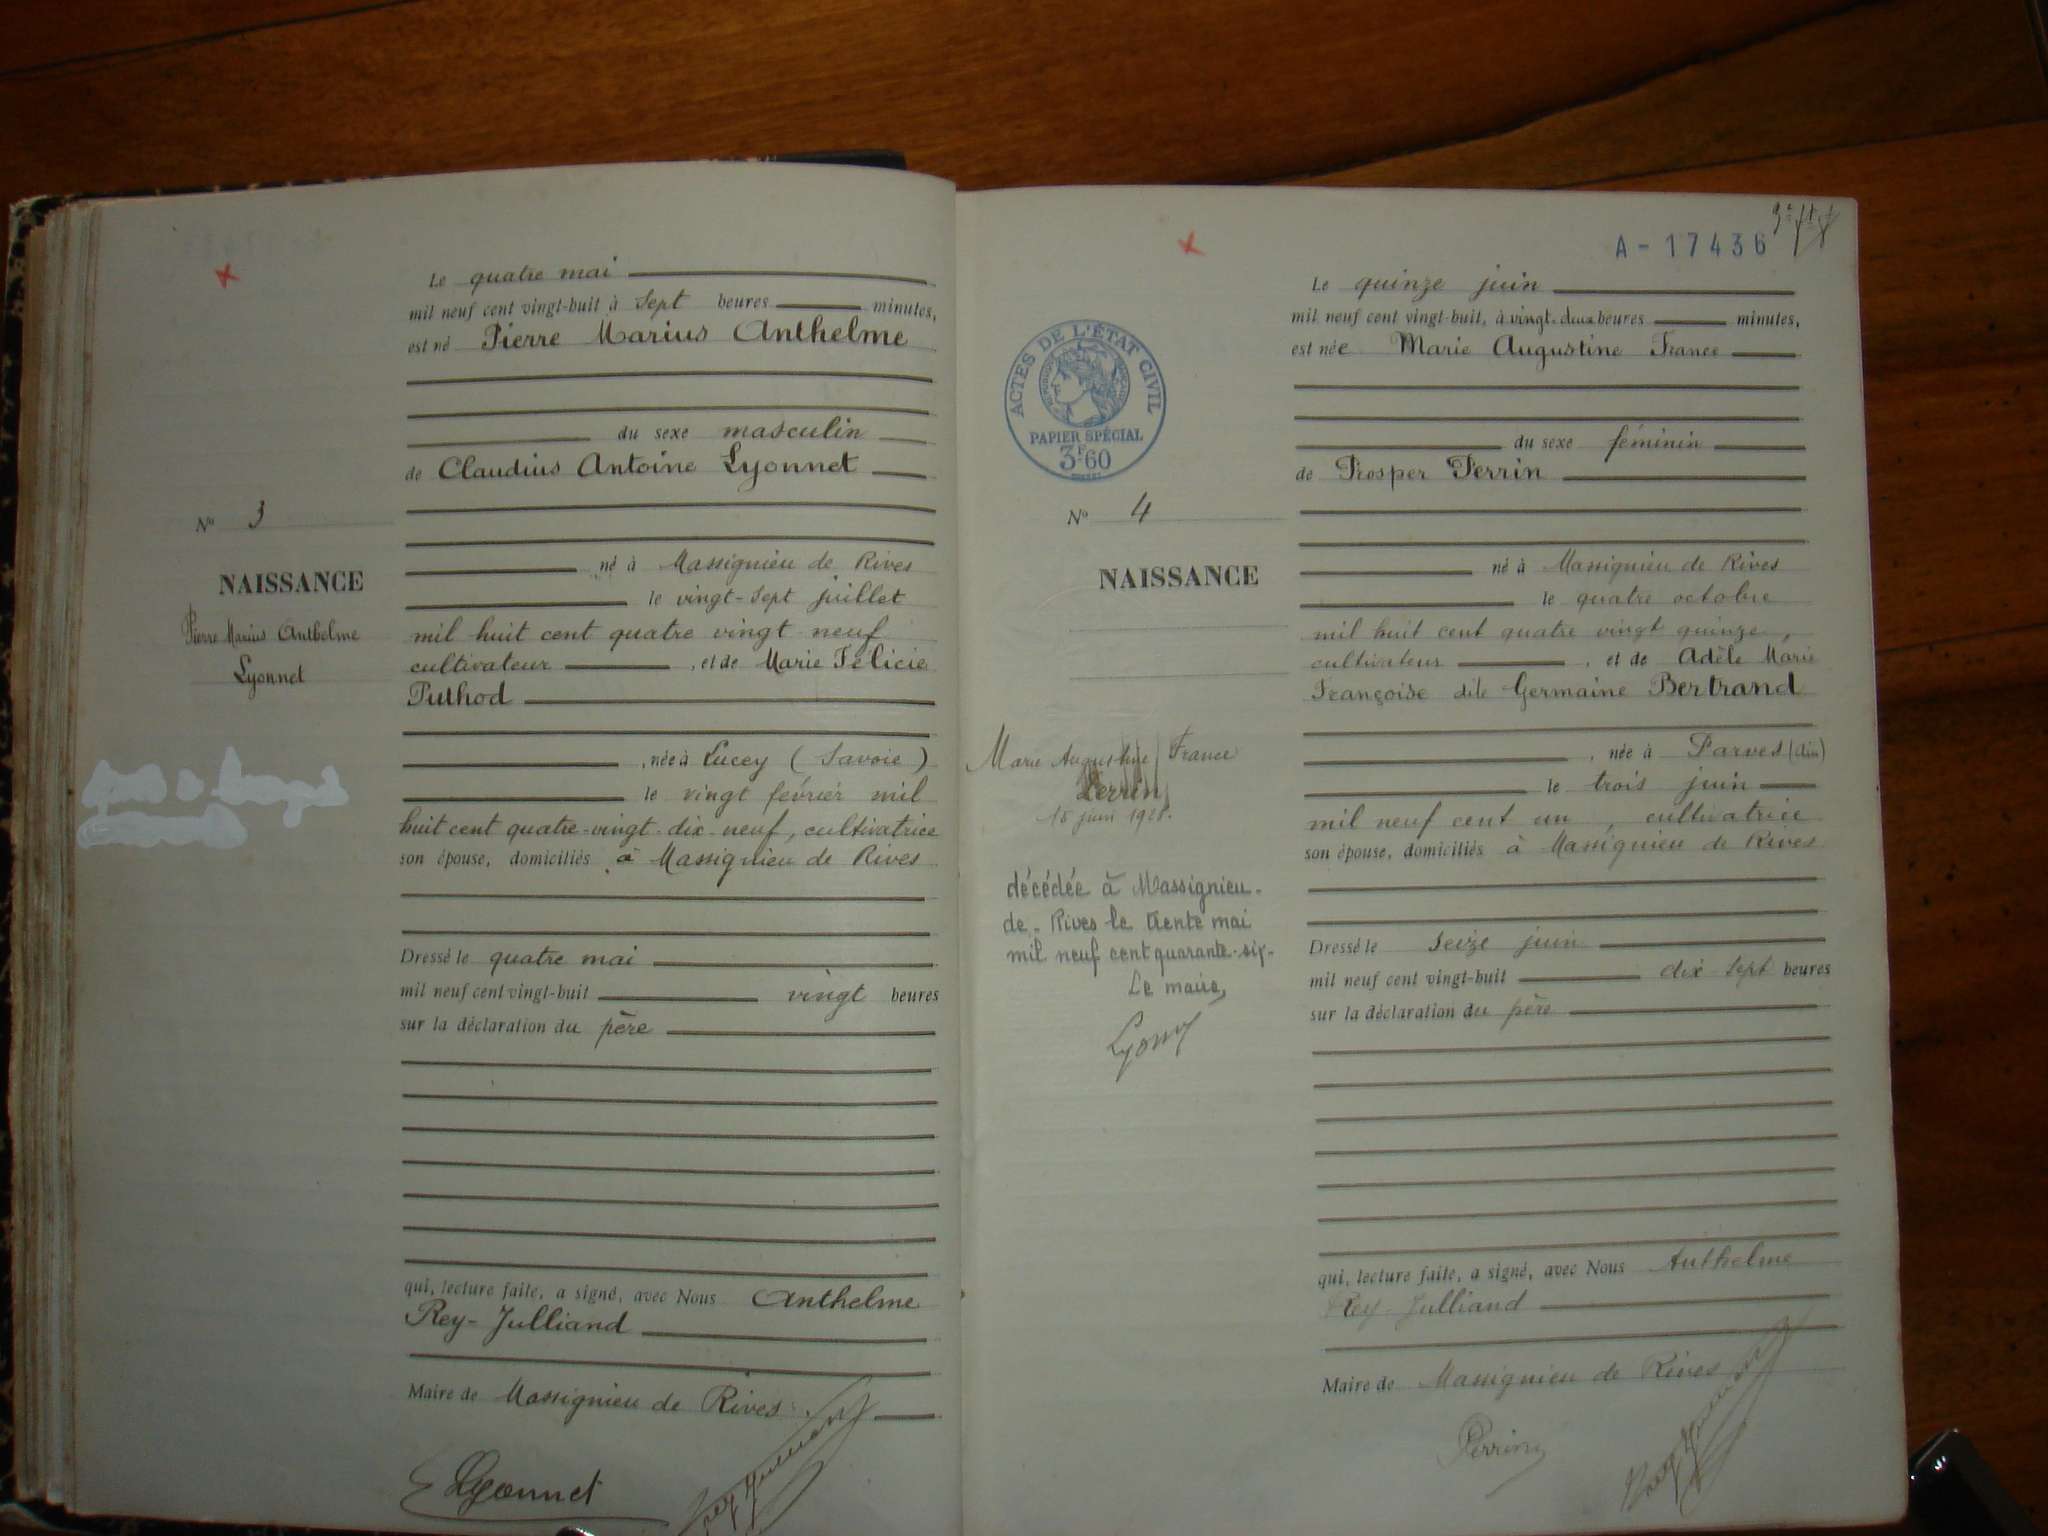 Le quatre mai
mil neuf cent vingt-huit à sept heures minutes,
est né Pierre Marius Anthelme
du sexe masculin
de Claudius Antoine Lyonnet
N° 3
NAISSANCE
Pierre Marius Anthelme
Lyonnet
né à Massignieu de Rives
le vingt-sept juillet
mil huit cent quatre vingt neuf
cultivateur , et de Marie Félicie
Puthod
, née à Lucey (Savoie)
le vingt février mil
huit cent quatre-vingt-dix-neuf, cultivatrice
son épouse, domiciliés à Massignieu de Rives
Dressé le quatre mai
mil neuf cent vingt-huit vingt heures
sur la déclaration du père
qui, lecture faite, a signé, avec Nous Anthelme
Rey-Julliand
Maire de Massignieu de Rives
Lyonnet
Rey Julliand
A-17436
Le quinze juin
mil neuf cent vingt-huit, à vingt-deux heures minutes,
est née Marie Augustine France
ACTES DE L'ÉTAT CIVIL
PAPIER SPÉCIAL
3F60
du sexe féminin
de Prosper Perrin
N° 4
NAISSANCE
Marie Augustine France
Perrin
15 juin 1928.
décédée à Massignieu-
de-Rives le trente mai
mil neuf cent quarante-six-
Le maire,
né à Massignieu de Rives
le quatre octobre
mil huit cent quatre vingt quinze,
cultivateur , et de Adèle Marie
Françoise dite Germaine Bertrand
, née à Parves (Ain)
le trois juin
mil neuf cent un, cultivatrice
son épouse, domiciliés à Massignieu de Rives
Dressé le seize juin
mil neuf cent vingt-huit dix sept heures
sur la déclaration du père
qui, lecture faite, a signé, avec Nous Anthelme
Rey-Julliand
Maire de Massignieu de Rives
Perrin
Rey Julliand